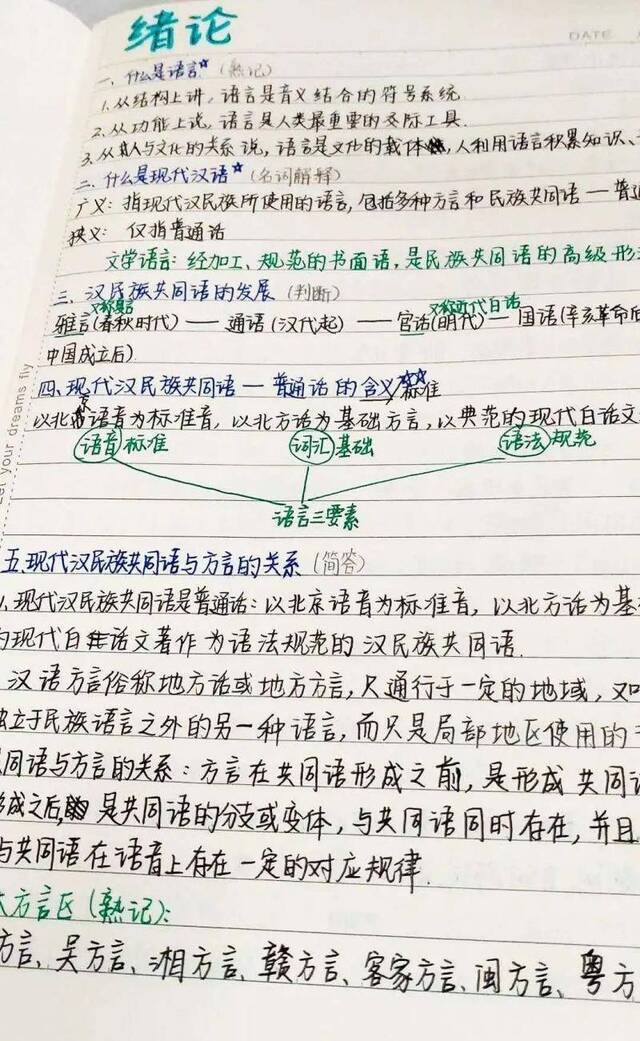 绪论
DATE
一、什么是语言☆(熟记)
1.从结构上讲,语言是音义结合的符号系统.
2.从功能上说,语言是人类最重要的交际工具.
3.从人与文化的关系说,语言是文化的载体,人利用语言积累知识、
二、什么是现代汉语☆(名词解释)
广义:指现代汉民族所使用的语言,包括多种方言和民族共同语——普通
狭义:仅指普通话
文学语言:经加工、规范的书面语,是民族共同语的高级形
三、汉民族共同语的发展(判断)
又称近代白话
雅言(春秋时代)——通语(汉代起)——官话(明代)——国语(辛亥革命后
中国成立后)
四、现代汉民族共同语——普通话的含义☆☆标准
以北京语音为标准音,以北方话为基础方言,以典范的现代白话文
语音标准 词汇基础 语法规范
语言三要素
Let your dreams fly
五.现代汉民族共同语与方言的关系(简答)
1.现代汉民族共同语是普通话:以北京语音为标准音,以北方话为基
的现代白话文著作为语法规范的汉民族共同语.
汉语方言俗称地方话或地方方言,只通行于一定的地域,
独立于民族语言之外的另一种语言,而只是局部地区使用的
同语与方言的关系:方言在共同语形成之前,是形成共同
形成之后,是共同语的分支或变体,与共同语同时存在,并且
与共同语在语音上存在一定的对应规律.
方言区(熟记):
方言、吴方言、湘方言、赣方言、客家方言、闽方言、粤方